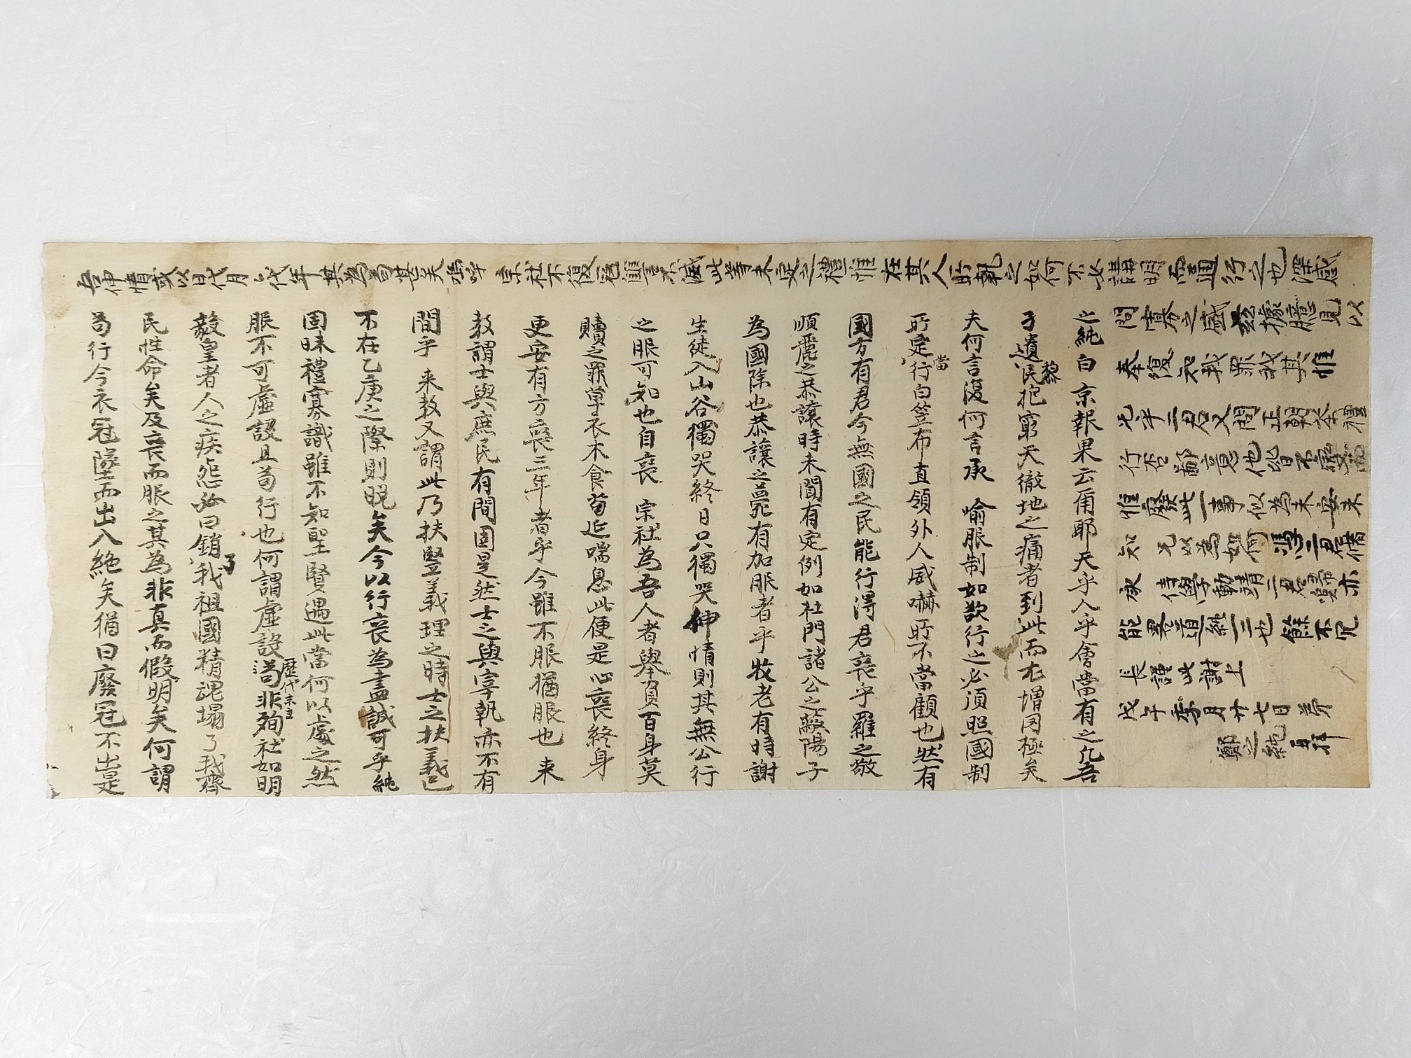 之純白 京報果云甭耶天乎人乎會當有之凡吾
孑遺黎民抱窮天徹地之痛者到此而尤增罔極矣
夫何言復何言承 喻服制如欲行之必須照國制
所定當行白笠布直領外人威嚇所不當顧也然有
國方有君今無國之民能行淂君喪乎羅之敬
順麗之恭讓時未聞有定例如杜門諸公之蔽陽子
為國除也恭讓之薨有加服者乎牧老有時謝
生徒入山谷獨哭終日只獨哭伸情則其無公行
之服可知也自喪 宗社為吾人者舉負百身莫
贖之罪草衣木食苟延喘息此便是心喪終身
更安有方喪三年者乎今雖不服猶服也 来
教謂士與庶民有間固是然士之與宰執亦不有
間乎 来教又謂此乃扶竪義理之時士之扶義已
不在乙庚之際則晩矣今以行喪為盡誠可乎純
固昧禮寡識雖不知聖賢遇此當何以處之然
服不可虛設且苟行也何謂虛設歷代末主苟非殉社如明
毅皇者人之疾怨必曰銷了我祖國精魂塌了我齊
民性命矣及喪而服之其為非真而假明矣何謂
苟行今衣冠墜而出入絶矣猶曰廢冠不出是
無伸情或以日代月以代年其為苟甚矣嗚呼
宗社不復冠讎言不滅此等未定之禮惟在其人所執之如何不必講明而通行之也深感
問寡之盛玆據臆見以
奉復知我罪我其惟
兄乎二君又問正朝茶禮
行否鄙意他皆不廢而
惟廢此一事似為未安未
知 兄以為如何 二君備
承 倩學動靖二君歸亦
能畧道純之也餘不冗
長謹此謝上
戊午季月廿七日 弟
鄭之純 再拜